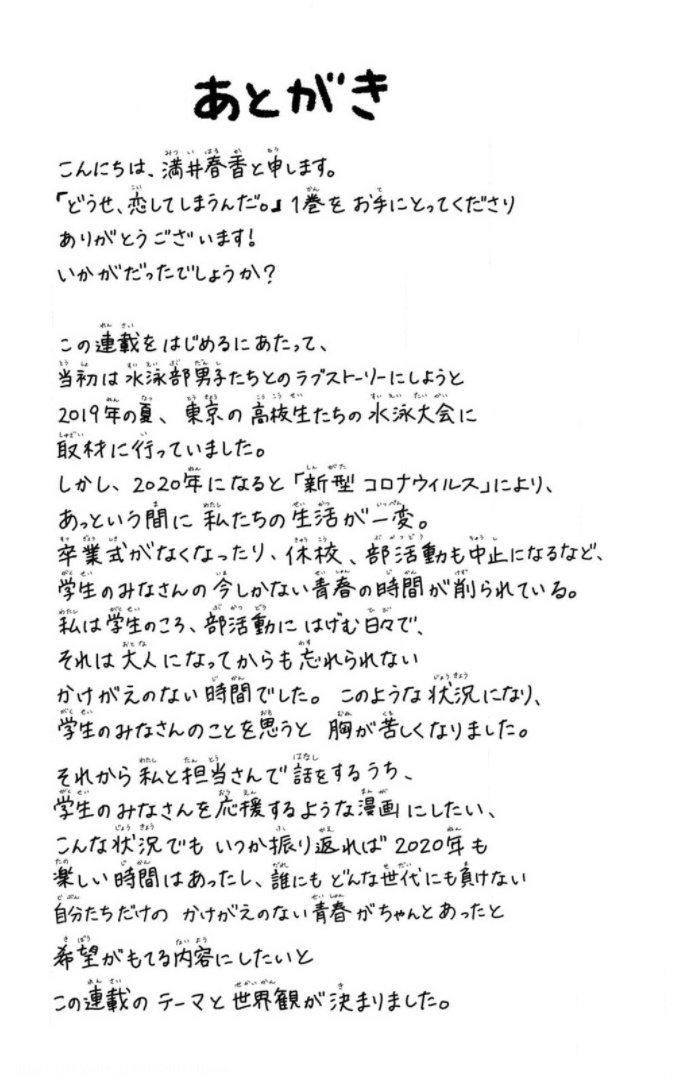 あとがき
こんにちは、満井春香と申します。
「どうせ、恋してしまうんだ。」1巻を お手にとってくださり
ありがとうございます!
いかがだったでしょうか?
この連載をはじめるにあたって、
当初は水泳部男子たちとのラブストーリーにしようと
2019年の夏、東京の高校生たちの水泳大会に
取材に行っていました。
しかし、2020年になると「新型コロナウィルス」により、
あっという間に私たちの生活が一変。
卒業式がなくなったり、休校、部活動も中止になるなど、
学生のみなさんの今しかない青春の時間が削られている。
私は学生のころ、部活動にはげむ日々で、
それは大人になってからも忘れられない
かけがえのない時間でした。このような状況になり、
学生のみなさんのことを思うと 胸が苦しくなりました。
それから私と担当さんで話をするうち、
学生のみなさんを応援するような漫画にしたい、
こんな状況でも いつか振り返れば2020年も
楽しい時間はあったし、誰にもどんな世代にも負けない
自分たちだけの かけがえのない青春がちゃんとあったと
希望がもてる内容にしたいと
この連載のテーマと世界観が決まりました。